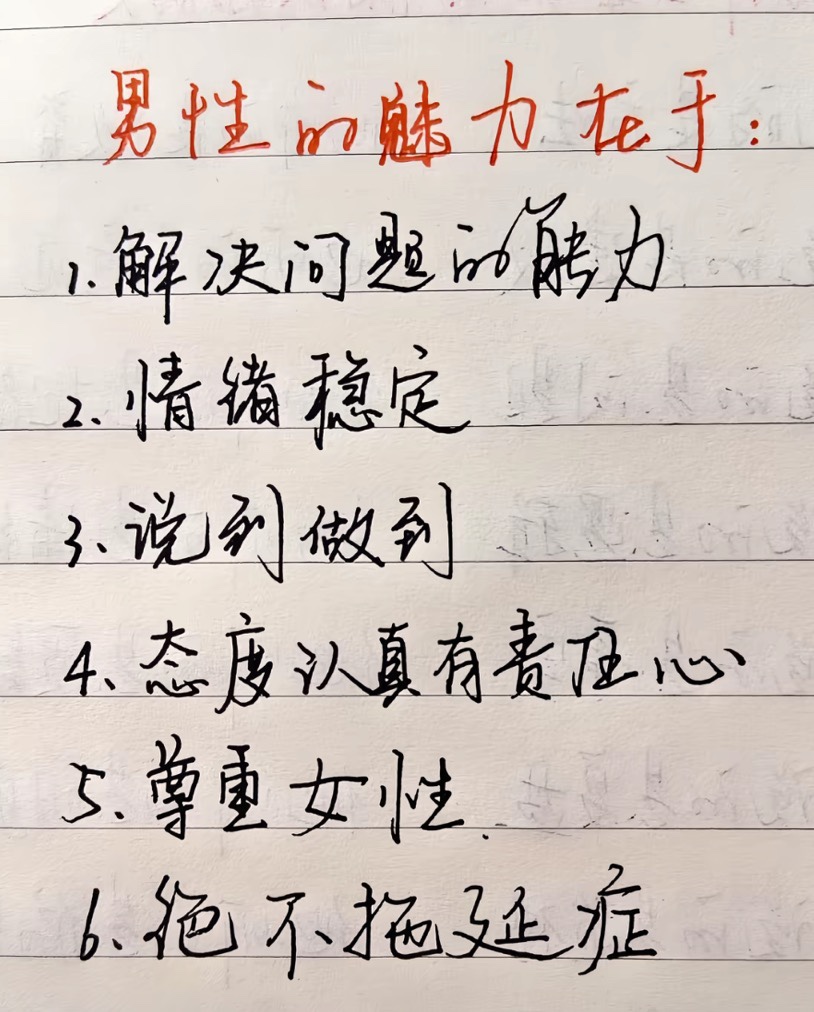 男性的魅力在于:
1.解决问题的能力
2.情绪稳定
3、说到做到
4、态度认真有责任心
5.尊重女性.
6、绝不拖延症